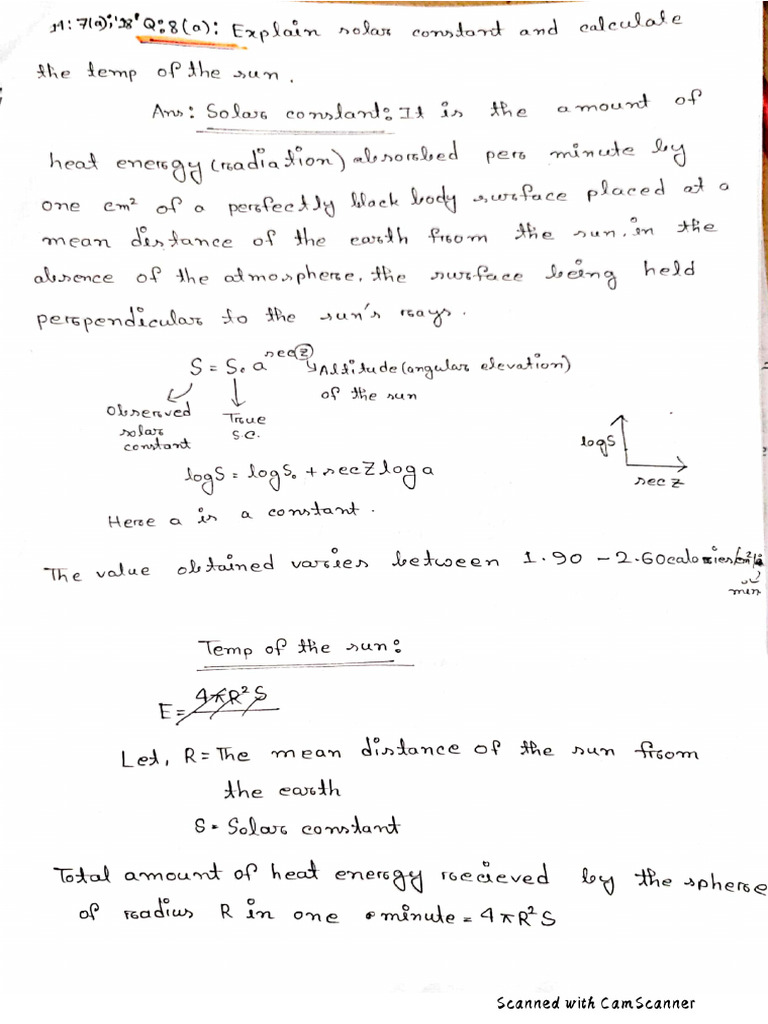 H: 7(a); '28' Q: 8(a): Explain solar constant and calculate
the temp of the sun.
Ans: Solar constant: It is the amount of
heat energy (radiation) absorbed per minute by
one cm² of a perfectly black body surface placed at a
mean distance of the earth from the sun, in the
absence of the atmosphere, the surface being held
perpendicular to the sun's rays.
S = S₀ a^sec z → Altitude (angular elevation)
of the sun
Observed
solar
constant
True
S.C.
log S
sec z
log S = log S₀ + sec Z log a
Here a is a constant.
The value obtained varies between 1.90 - 2.60 calories/cm²/
min
Temp of the sun:
E = 4πR²S
Let, R = The mean distance of the sun from
the earth
S = Solar constant
Total amount of heat energy recieved by the sphere
of radius R in one minute = 4πR²S
Scanned with CamScanner